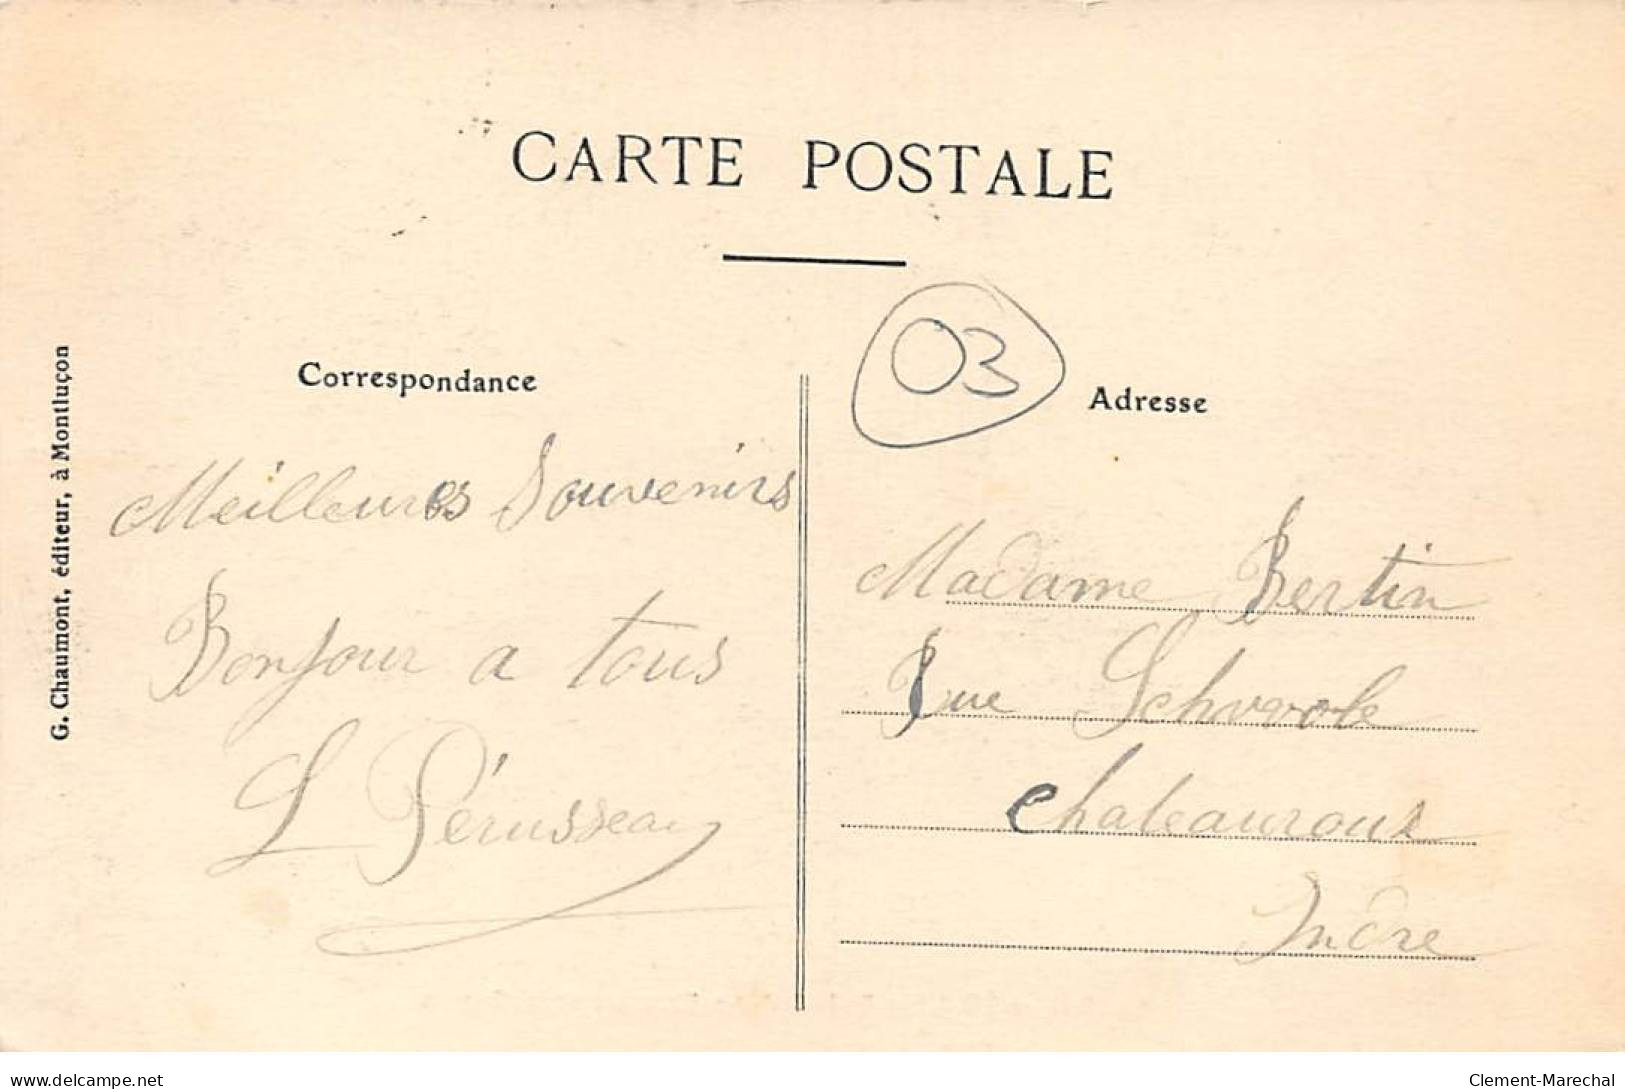 CARTE POSTALE
03
Correspondance
Adresse
G. Chaumont, éditeur, à Montluçon
Meilleures Souvenirs
Bonjour a tous
L Pérusseau
Madame Bertin
Rue
Chateauroux
Indre
delcampe.net
Clement-Marechal